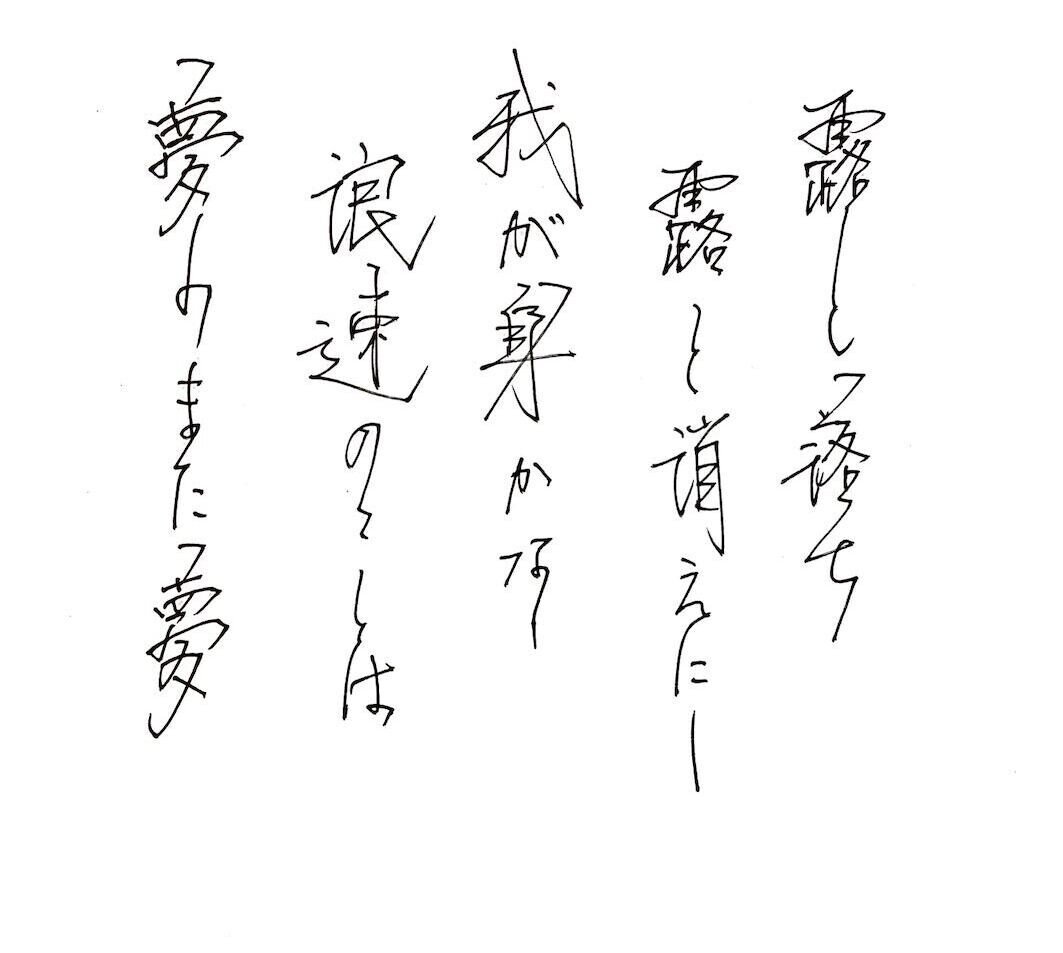 露と落ち
露と消えにし
我が身かな
浪速のことは
夢のまた夢